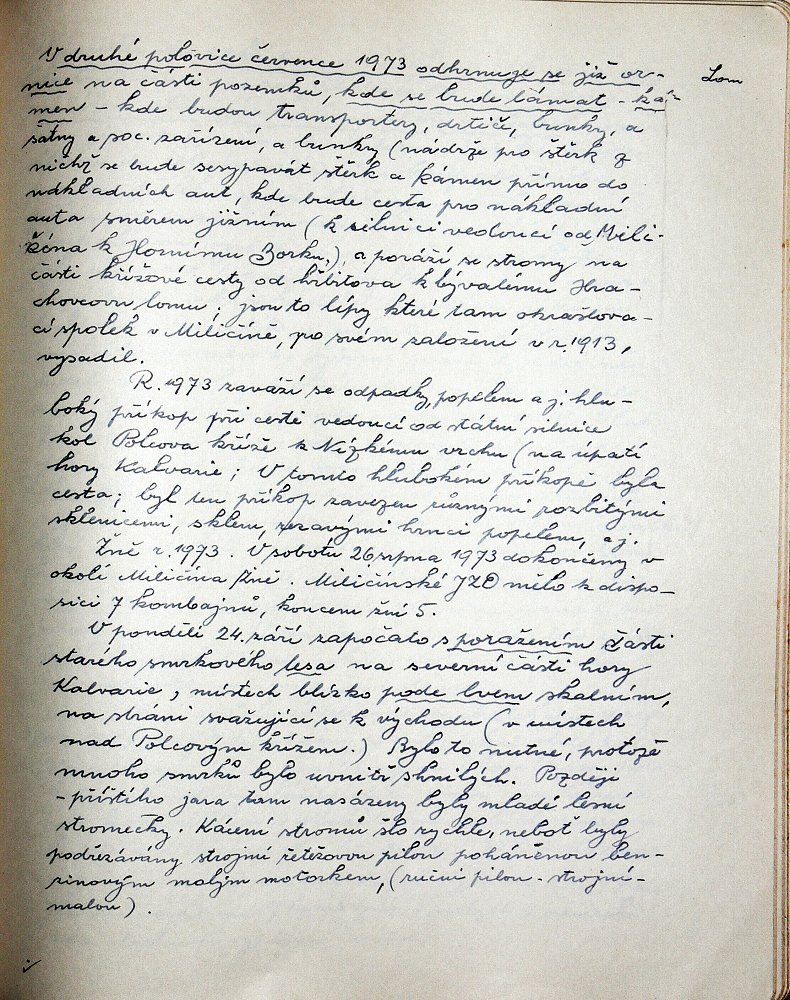 V druhé polovice července 1973 odhrnuje se již or-
nice na části pozemků, kde se bude lámat - ká-
men - kde budou transportery, drtiče, bunkry, a
šatny a soc. zařízení, a bunkry (nádrže pro štěrk z
nichž se bude sesypavát štěrk a kámen přímo do
nákladních aut, kde bude cesta pro nákladní
auta směrem jižním (k silnici vedoucí od Mili-
čína k Hornímu Borku,), a poráží se stromy na
části křížové cesty od hřbitova k bývalému Hra-
chovcovu lomu; jsou to lípy které tam okrašlova-
cí spolek v Miličíně, po svém založení v r. 1913,
vysadil.
Lom
R. 1973 zaváží se odpadky, popelem a j. hlu-
boký příkop při cestě vedoucí od státní silnice
kol Polcova kříže k Nízkému vrchu (na úpatí
hory Kalvarie; V tomto hlubokém příkopě byla
cesta; byl ten příkop zavezen různými rozbitými
sklenicemi, sklem, rezavými hrnci popelem, a j.
Žně r. 1973. V sobotu 26 srpna 1973 dokončeny v
okolí Miličína žně. Miličínské JZD mělo k dispo-
sici 7 kombajnů, koncem žní 5.
V pondělí 24. září započato s poražením části
starého smrkového lesa na severní části hory
Kalvarie, místech blízko pode lvem skalním,
na stráni svažující se k východu (v místech
nad Polcovým křížem.) Bylo to nutné, protože
mnoho smrků bylo uvnitř shnilých. Později
- příštího jara tam nasázeny byly mladé lesní
stromečky. Kácení stromů šlo rychle, neboť byly
podřezávány strojní řetězovou pilou poháněnou ben-
zinovým malým motorkem, (ruční pilou - strojní-
malou).